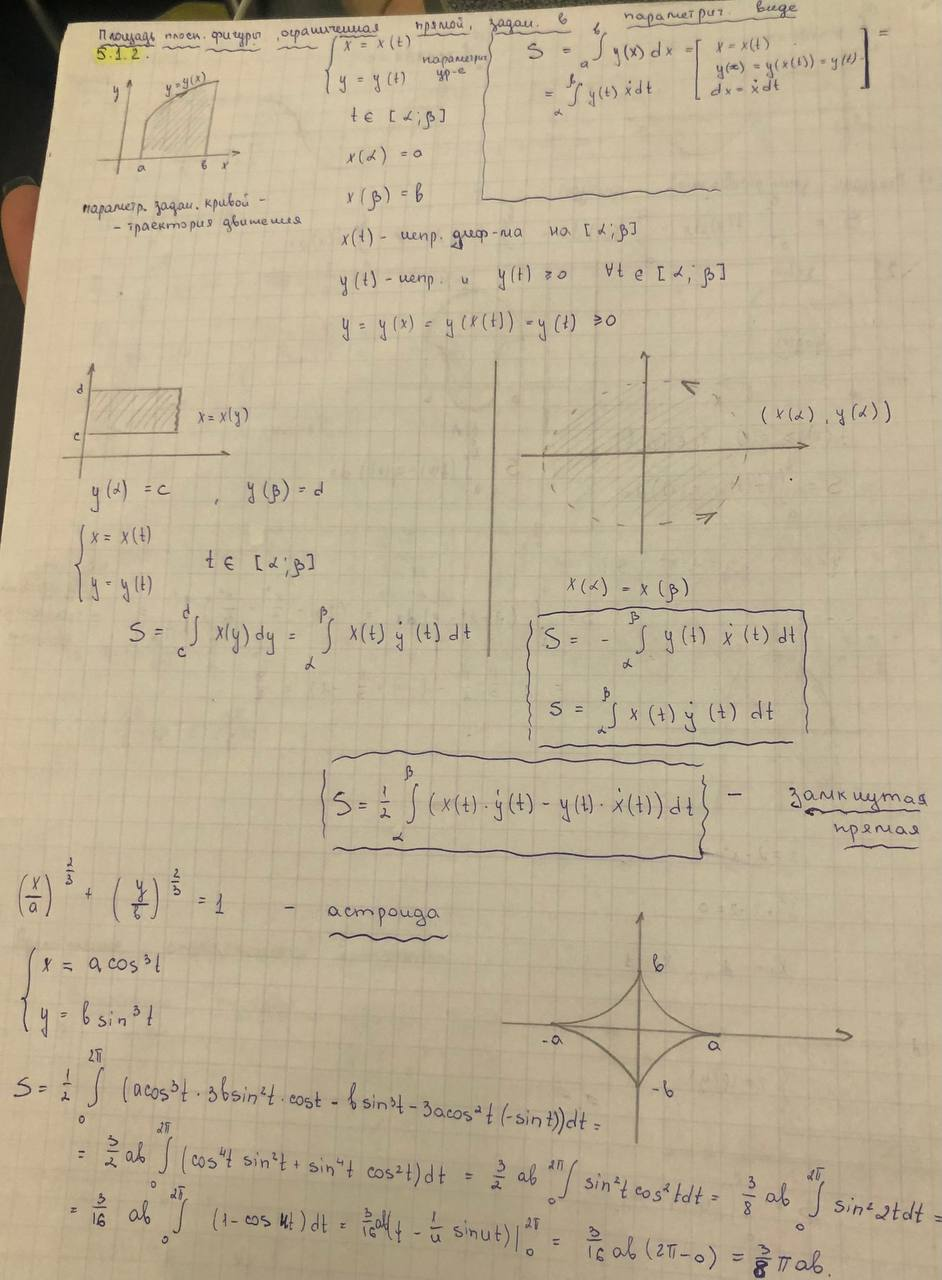 Площадь плоск. фигуры, ограниченная прямой, задан. в параметрич. виде
5.1.2.
y
y=y(x)
a
в
x
параметр. задан. кривой -
- траектория движения
{ x = x(t)
y = y(t)
параметрич
ур-е
t ∈ [α;β]
x(α) = a
x(β) = в
S = ₐ∫ᵇ y(x) dx = [ x = x(t)
y(x) = y(x(t)) = y(t)
dx = ẋdt ] =
= ∫_α^β y(t) ẋdt
x(t) - непр. диф-ма на [α;β]
y(t) - непр. и y(t) ≥0 ∀t ∈ [α;β]
y = y(x) = y(x(t)) = y(t) ≥0
d
c
x = x(y)
y(α) = c , y(β) = d
{ x = x(t)
y = y(t)
t ∈ [α;β]
S = ∫_c^d x(y) dy = ∫_α^β x(t) ẏ(t) dt
(x(α), y(α))
x(α) = x(β)
S = - ∫_α^β y(t) ẋ(t) dt
S = ∫_α^β x(t) ẏ(t) dt
S = 1/2 ∫_α^β (x(t)·ẏ(t) - y(t)·ẋ(t)) dt - замкнутая
прямая
(x/a)^(2/3) + (y/в)^(2/3) = 1 - астроида
{ x = a cos³t
y = в sin³t
в
-a
a
-в
S = 1/2 ∫_0^2π (acos³t · 3вsin²t · cost - вsin³t - 3acos²t (-sint))dt =
= 3/2 ab ∫_0^2π (cos⁴t sin²t + sin⁴t cos²t)dt = 3/2 ab ∫_0^2π sin²t cos²tdt = 3/8 ab ∫_0^2π sin²2tdt =
= 3/16 ab ∫_0^2π (1-cos 4t)dt = 3/16 ab(t - 1/4 sin4t)|_0^2π = 3/16 ab(2π-0) = 3/8 πab.